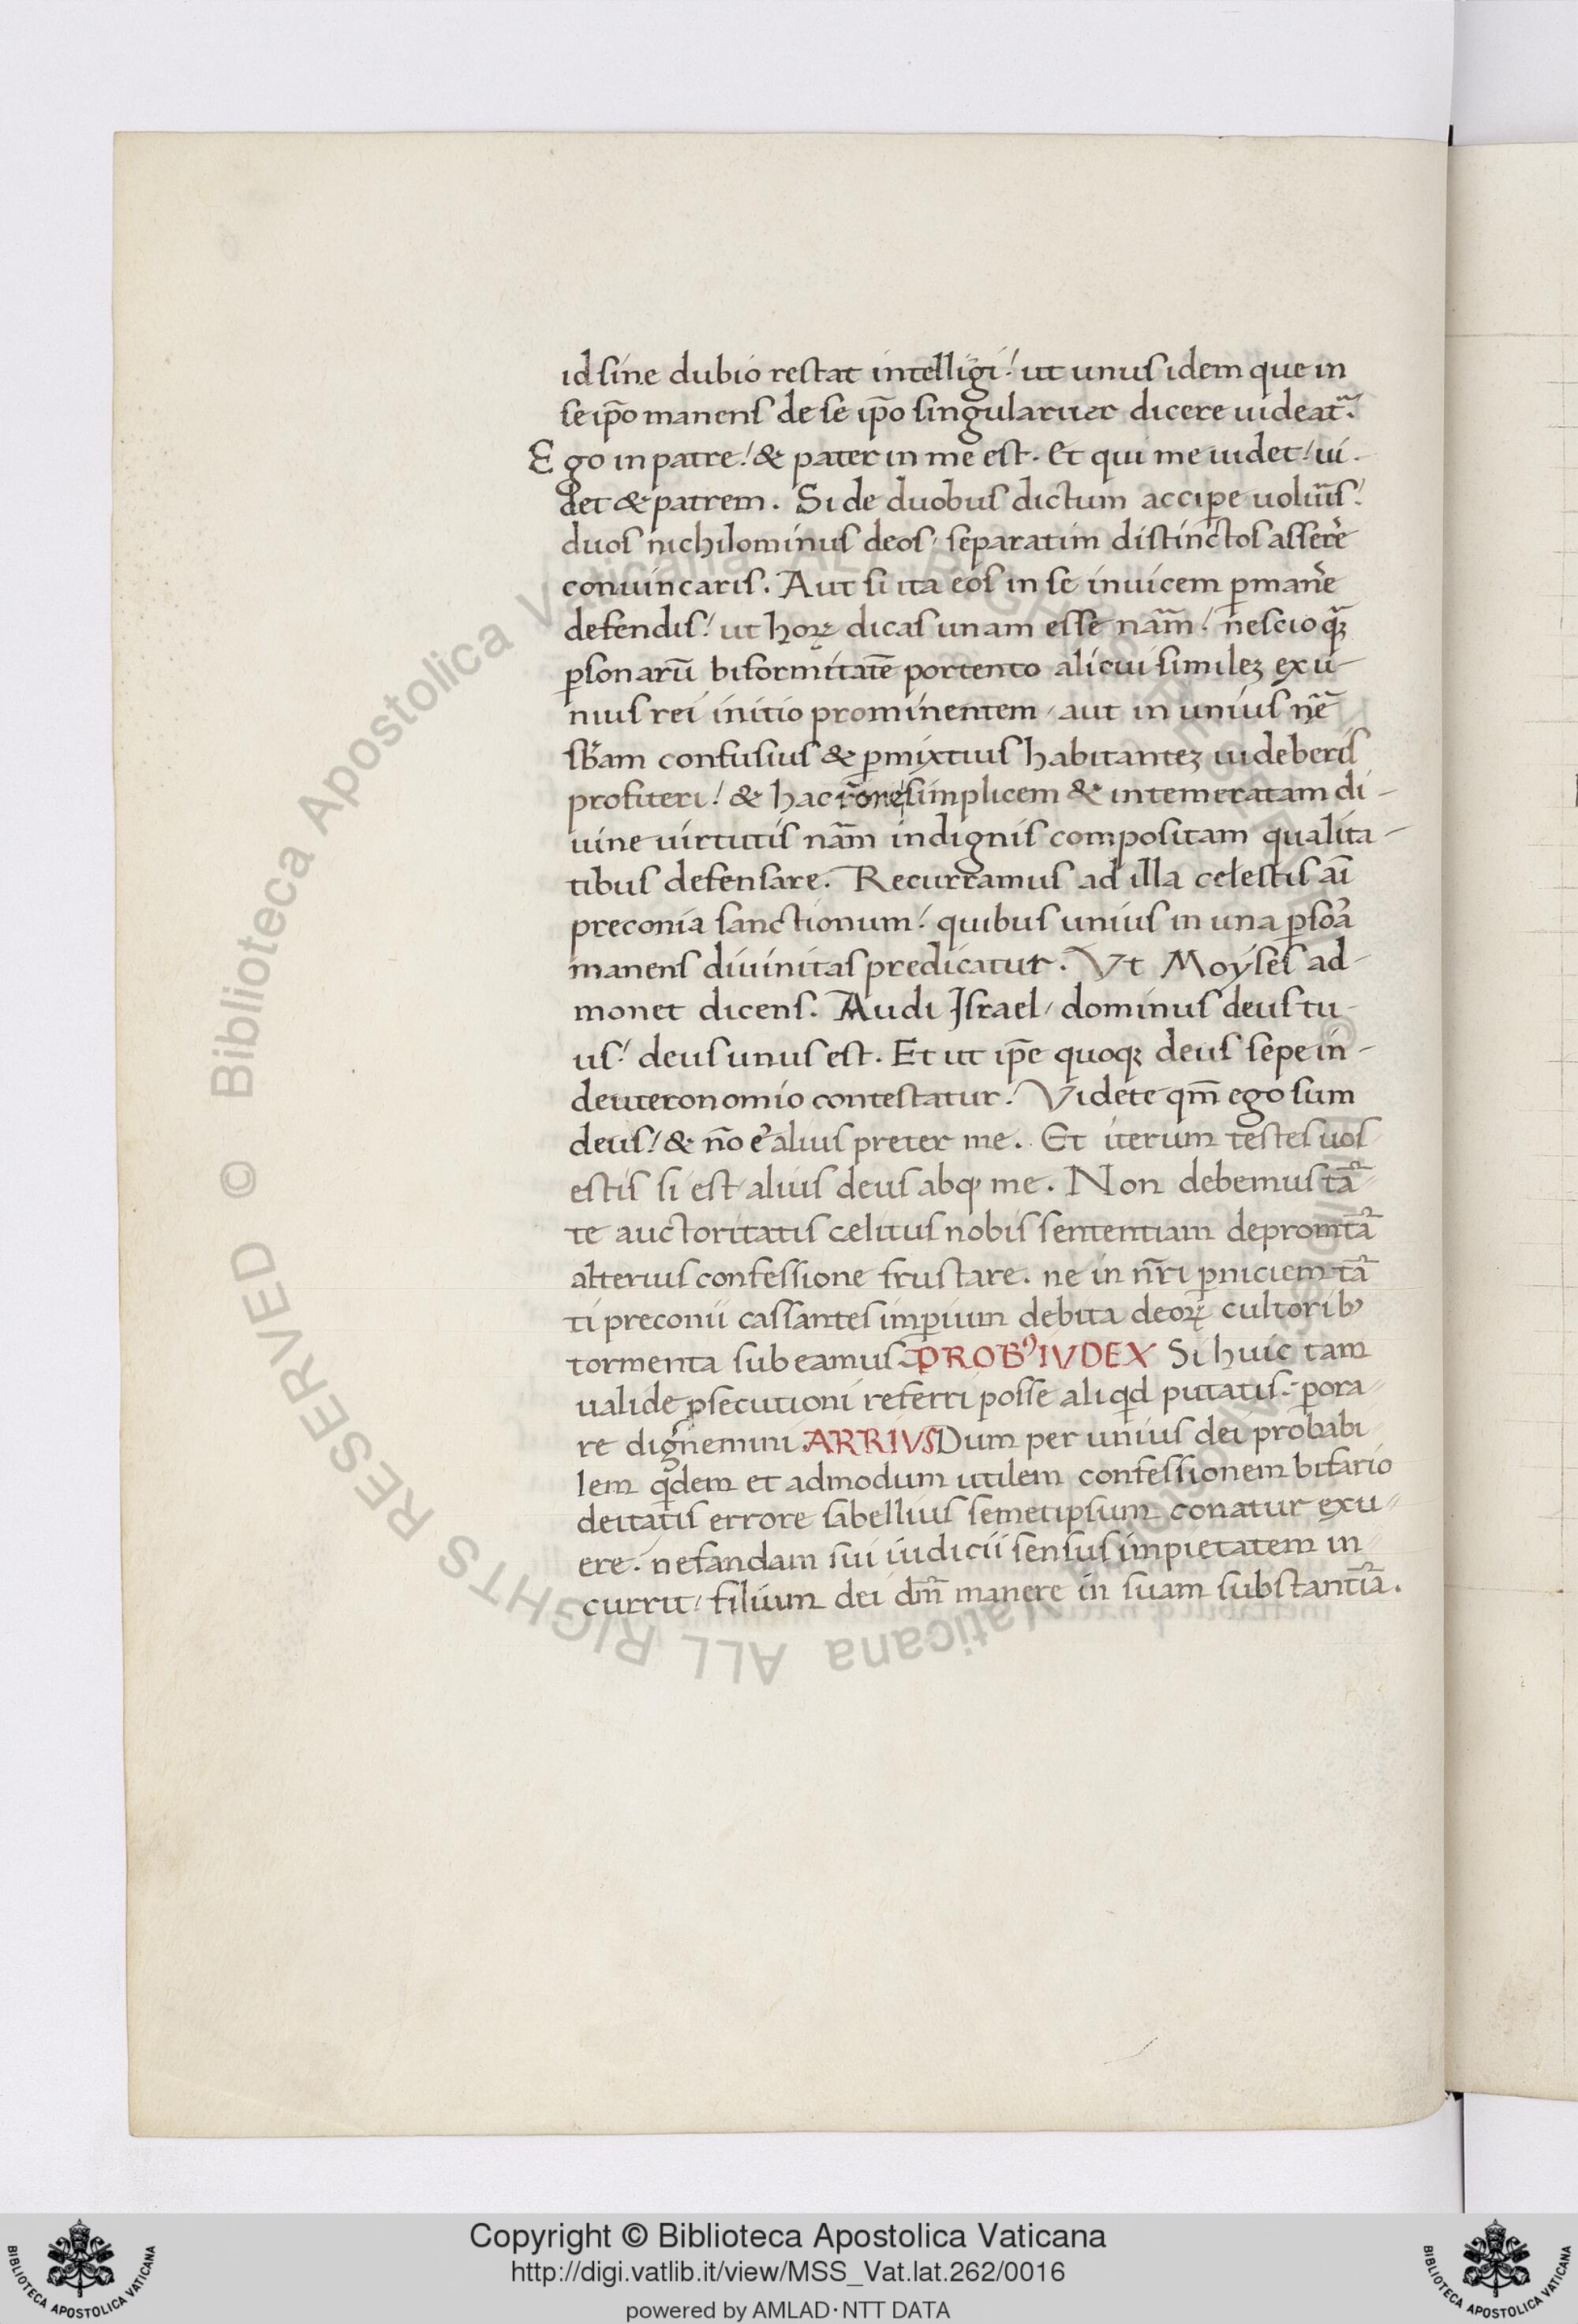 id sine dubio restat intelligi! ut unus idem que in
se ip̅o manens de se ip̅o singulariter dicere uideat᷑.
Ego in patre! & pater in me est. Et qui me uidet! ui-
det & patrem. Si de duobus dictum accipe uolui̅s!
duos nichilominus deos, separatim distinctos asser̅e
conuincaris. Aut si ita eos in se inuicem ꝑman̅e
defendis! ut hoꝝ dicas unam esse na̅m! nescio
ꝑsonaru̅ biformitate̅ portento alicui similez ex u-
nius rei initio prominentem, aut in unius n̅e
sb̅am confusius & ꝑmixtius habitantez uideberis
profiteri! & hac r̅one simplicem & intemeratam di-
uine uirtutis na̅m indignis compositam qualita-
tibus defensare. Recurramus ad illa celestis ai̅
preconia sanctionum! quibus unius in una ꝑso̅a
manens diuinitas predicatur. Vt Moyses ad-
monet dicens. Audi Israel, dominus deus tu-
us! deus unus est. Et ut ip̅e quoqꝫ deus sepe in-
deuteronomio contestatur! Videte qm̅ ego sum
deus! & no̅ e̅ alius preter me. Et iterum testes uos
estis si est alius deus absqꝫ me. Non debemus ta̅-
te auctoritatis celitus nobis sententiam depromta̅
alterius confessione frustare. ne in n̅ri ꝑniciem ta̅
ti preconii cassantes imꝑium debita deoꝝ cultorib᾿
tormenta subeamus. PROBꝰ IVDEX Si huic tam
ualide ꝑsecutioni referri posse aliqd putatis. ꝑora-
re dignemini. ARRIVS Dum per unius dei probabi
lem qdem et admodum utilem confessionem bifario
deitatis errore sabellius semetipsum conatur exu-
ere. nefandam sui iudicii sensus impietatem in-
currit, filium dei dm̅ manere in suam substantia̅.
© Biblioteca Apostolica Vaticana ALL RIGHTS RESERVED
Copyright © Biblioteca Apostolica Vaticana
http://digi.vatlib.it/view/MSS_Vat.lat.262/0016
powered by AMLAD·NTT DATA
BIBLIOTECA APOSTOLICA VATICANA
BIBLIOTECA APOSTOLICA VATICANA